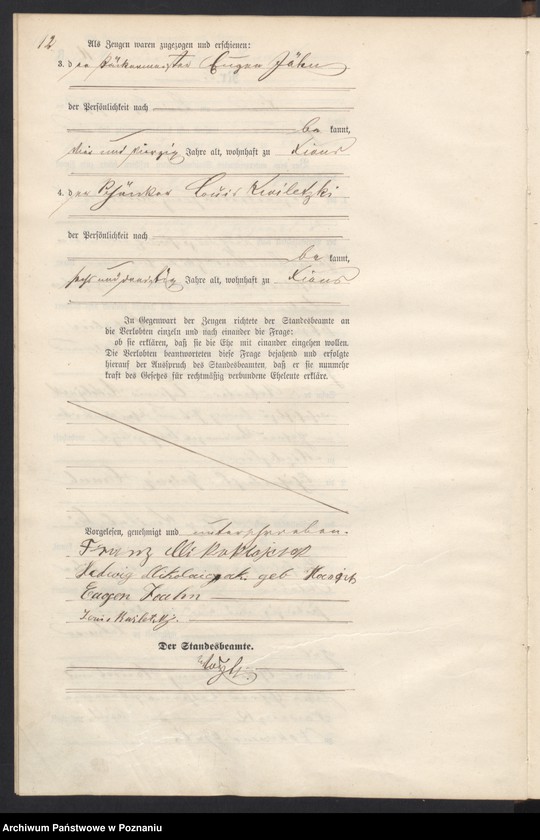 12
Als Zeugen waren zugezogen und erschienen:
3. der Bäckermeister Eugen Jähn
der Persönlichkeit nach
be kannt,
vier und vierzig Jahre alt, wohnhaft zu Xions
4. der Schänker Louis Kwiletzki
der Persönlichkeit nach
be kannt,
sechs und dreißig Jahre alt, wohnhaft zu Xions
In Gegenwart der Zeugen richtete der Standesbeamte an
die Verlobten einzeln und nach einander die Frage:
ob sie erklären, daß sie die Ehe mit einander eingehen wollen.
Die Verlobten beantworteten diese Frage bejahend und erfolgte
hierauf der Ausspruch des Standesbeamten, daß er sie nunmehr
kraft des Gesetzes für rechtmäßig verbundene Eheleute erkläre.
Vorgelesen, genehmigt und unterschrieben.
Franz
Hedwig Mikolaiczak geb
Eugen Jaehn
Louis
Der Standesbeamte.
Archiwum Państwowe w Poznaniu